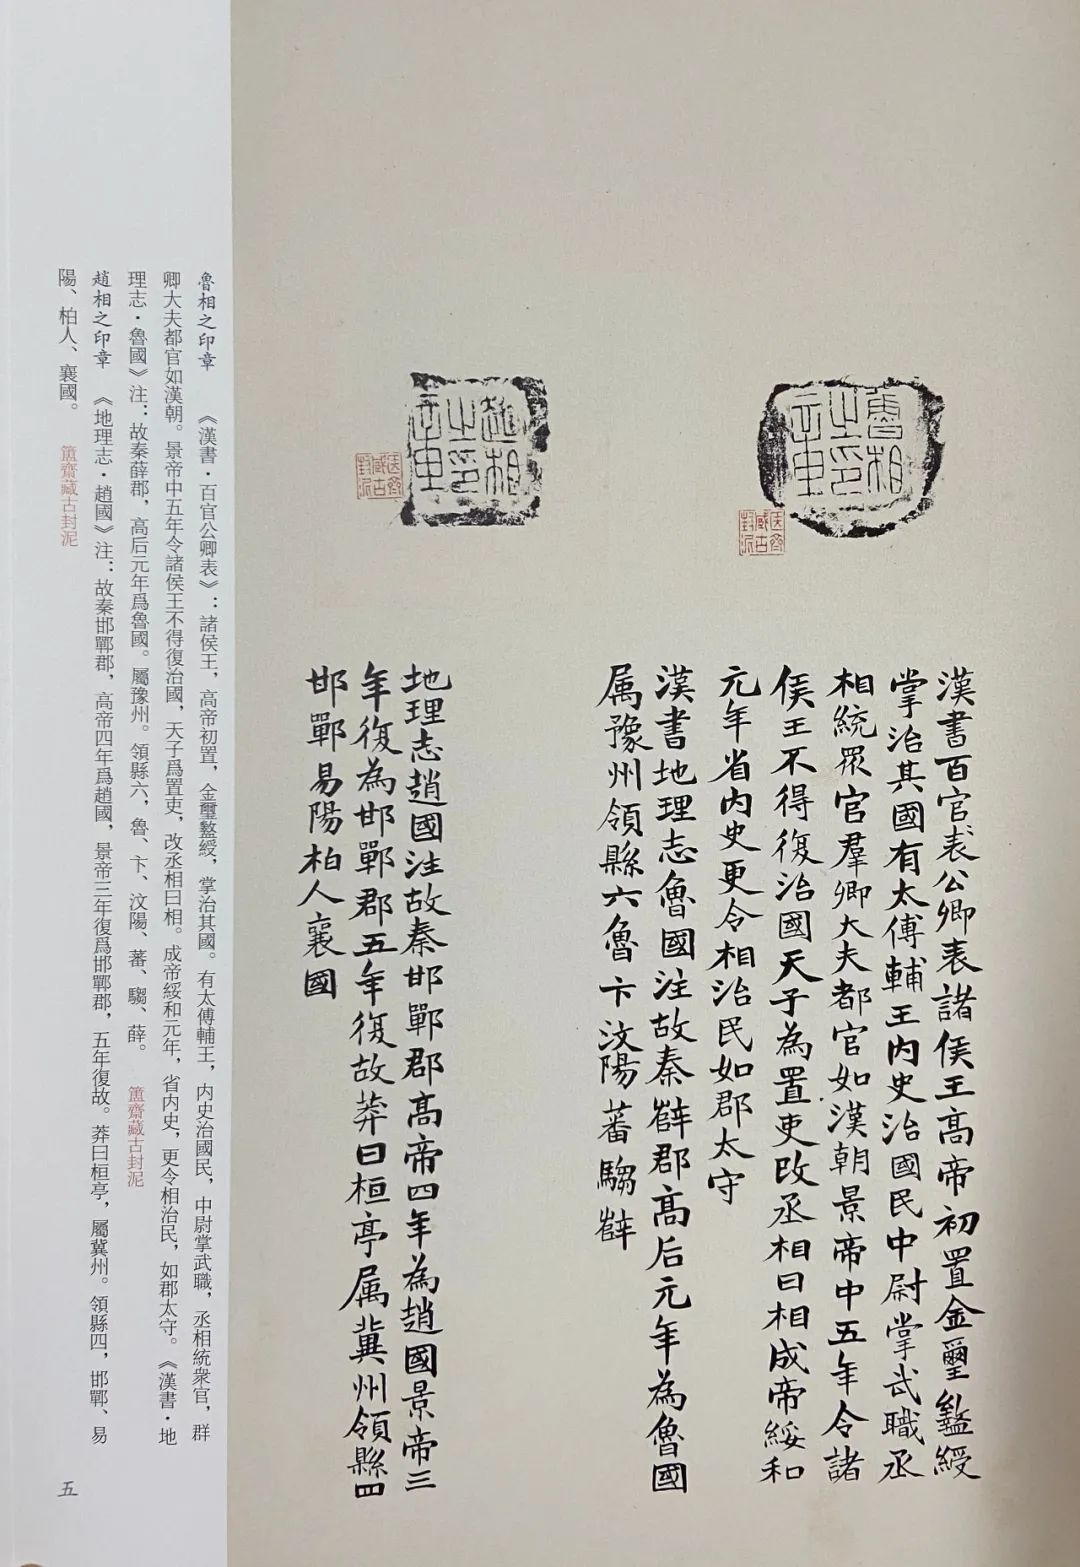 魯相之印章
匽齋
臧古
封泥
趙相之印章
匽齋
臧古
封泥
漢書百官表公卿表諸侯王高帝初置金璽盭綬
掌治其國有太傅輔王内史治國民中尉掌武職丞
相統眾官羣卿大夫都官如漢朝景帝中五年令諸
侯王不得復治國天子為置吏改丞相曰相成帝綏和
元年省内史更令相治民如郡太守
漢書地理志魯國注故秦薛郡高后元年為魯國
属豫州領縣六魯卞汶陽蕃騶薛
地理志趙國注故秦邯鄲郡高帝四年為趙國景帝三
年復為邯鄲郡五年復故莽曰桓亭属冀州領縣四
邯鄲易陽柏人襄國
魯相之印章　《漢書·百官公卿表》：諸侯王，高帝初置，金璽盭綬，掌治其國。有太傅輔王，内史治國民，中尉掌武職，丞相統衆官，群
卿大夫都官如漢朝。景帝中五年令諸侯王不得復治國，天子爲置吏，改丞相曰相。成帝綏和元年，省内史，更令相治民，如郡太守。《漢書·地
理志·魯國》注：故秦薛郡，高后元年爲魯國。屬豫州。領縣六，魯、卞、汶陽、蕃、騶、薛。　簠齋藏古封泥
趙相之印章　《地理志·趙國》注：故秦邯鄲郡，高帝四年爲趙國，景帝三年復爲邯鄲郡，五年復故。莽曰桓亭，屬冀州。領縣四，邯鄲、易
陽、柏人、襄國。　簠齋藏古封泥
五